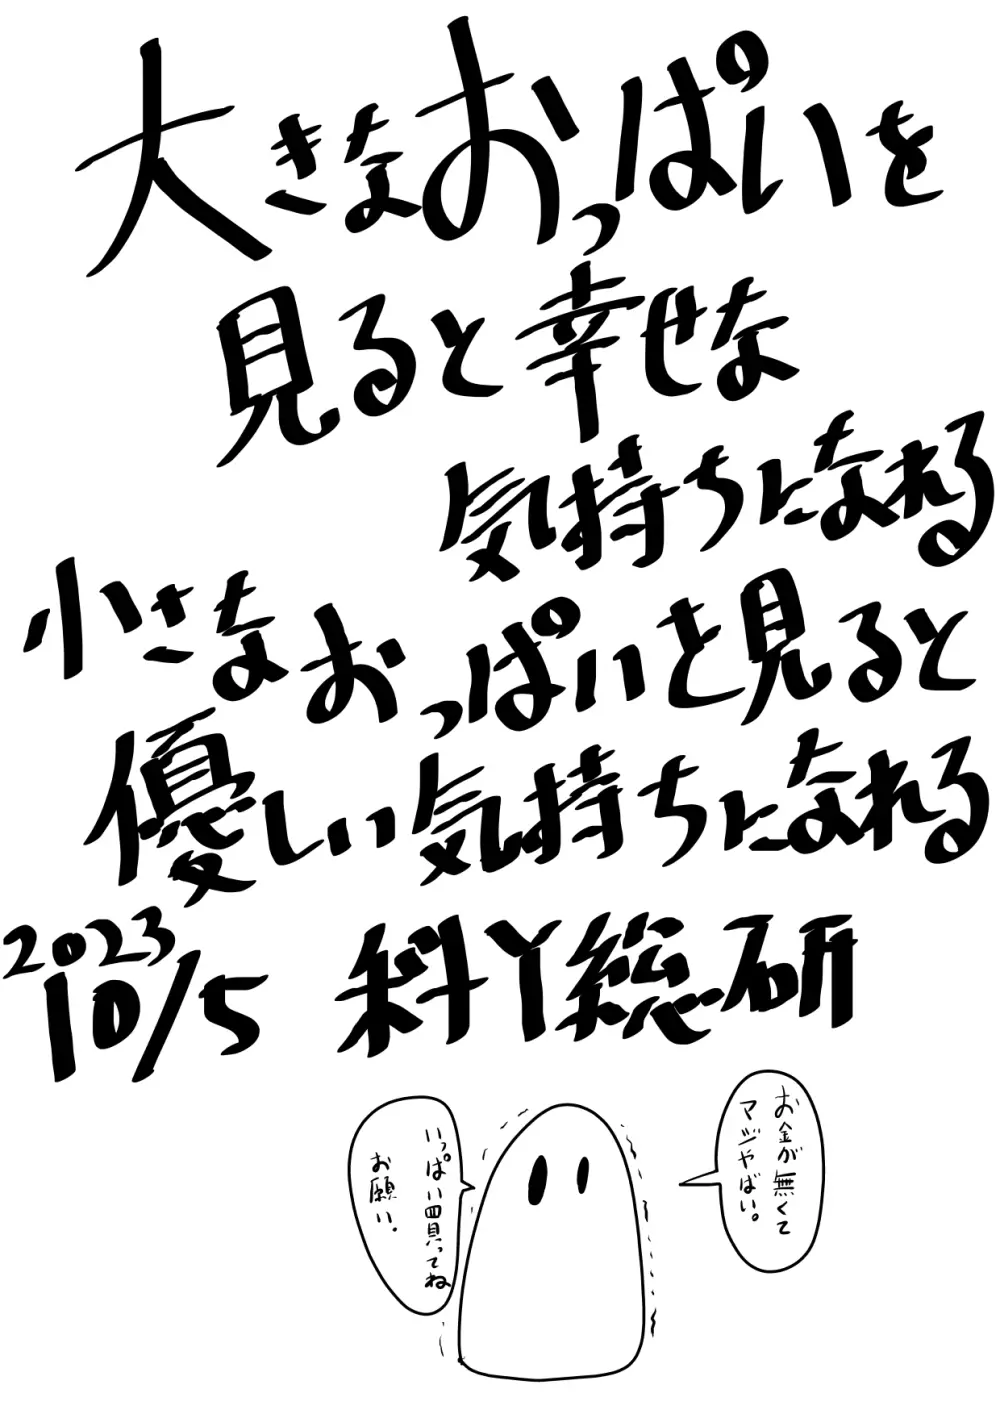 大きなおっぱいを
見ると幸せな
気持ちになれる
小さなおっぱいを見ると
優しい気持ちになれる
2023
10/5 料Y総研
お金が無くて
マジやばい。
いっぱい買ってね
お願い.